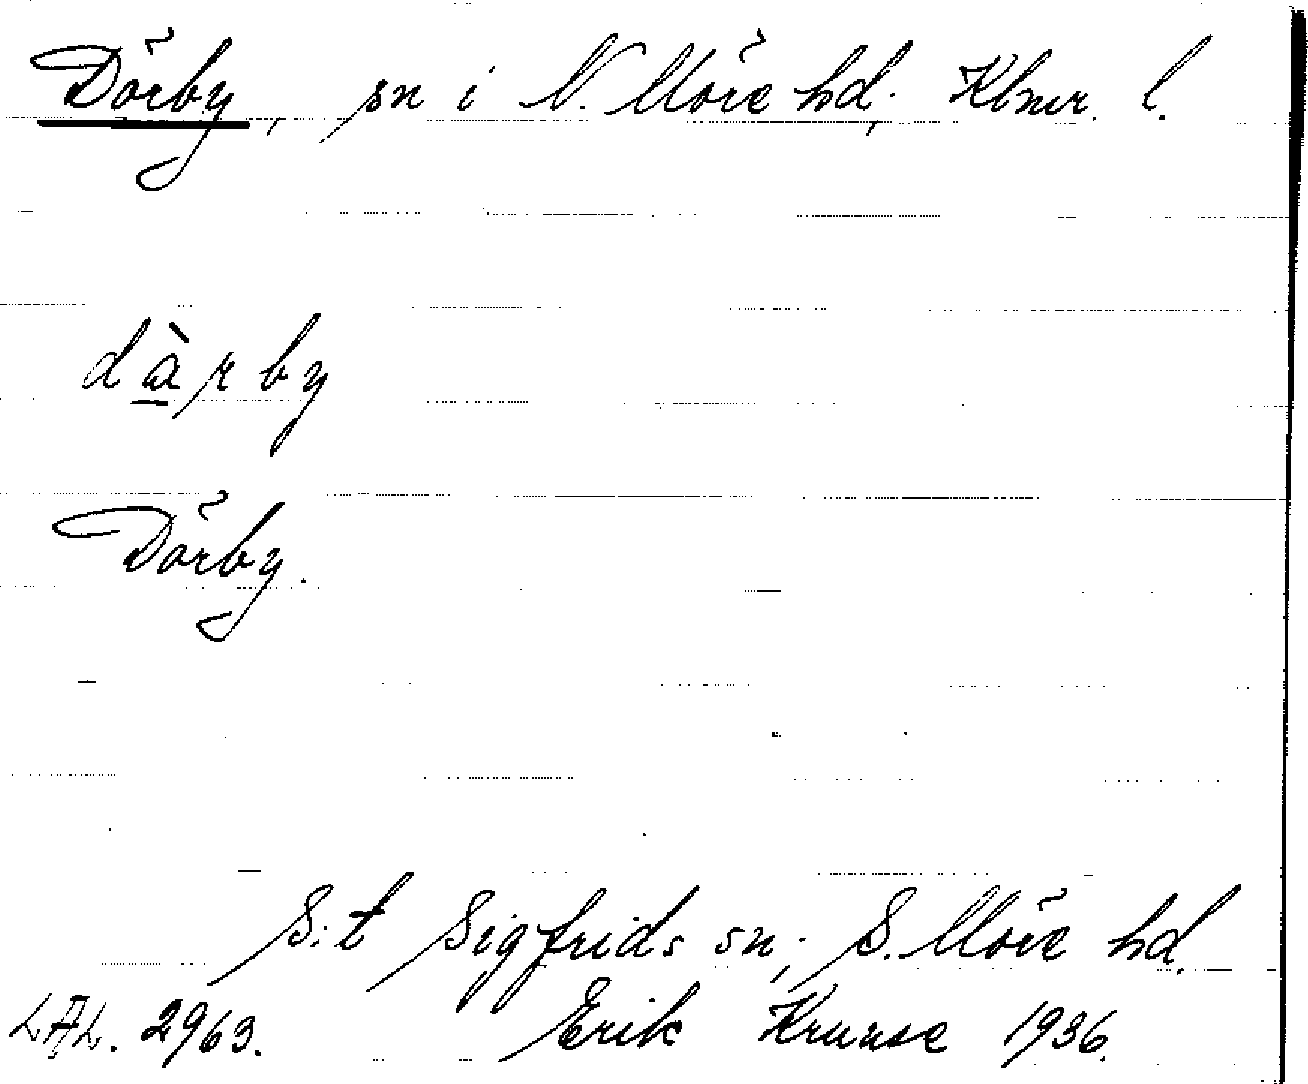 Dörby, sn i N. Möre hd, Klmr. l.
dàrby
Dörby.
S:t Sigfrids sn, S. Möre hd.
LAL. 2963. Erik Kruuse 1936.